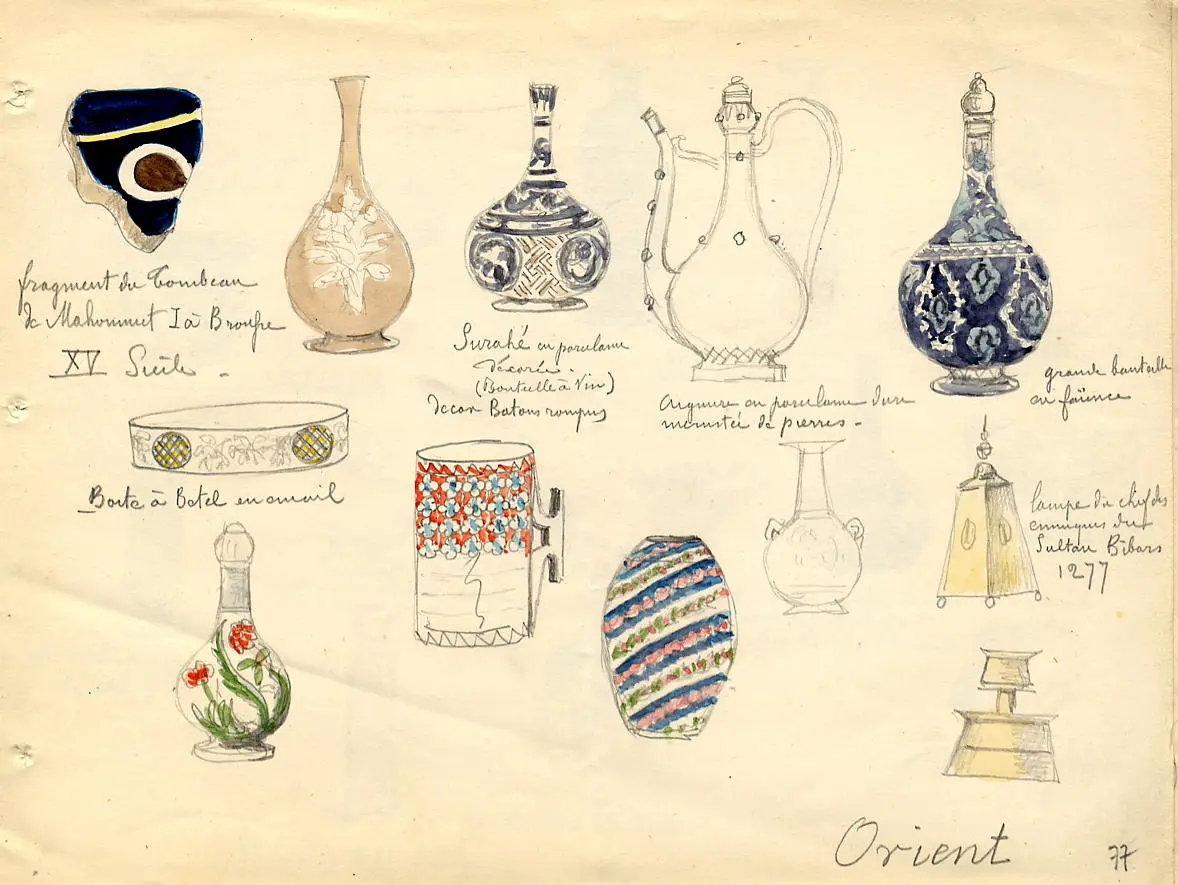 fragment du Tombeau
de Mahommet I à Brousse
XV Siècle -
Surahé en porcelaine
décorée.
(Bouteille à Vin)
decor Batons rompus
Aiguière en porcelaine dure
incrustée de pierres -
grande bouteille
en faïence
Boite à Betel en émail
lampe du chef des
eunuques du
Sultan Bibars
1277
Orient
77